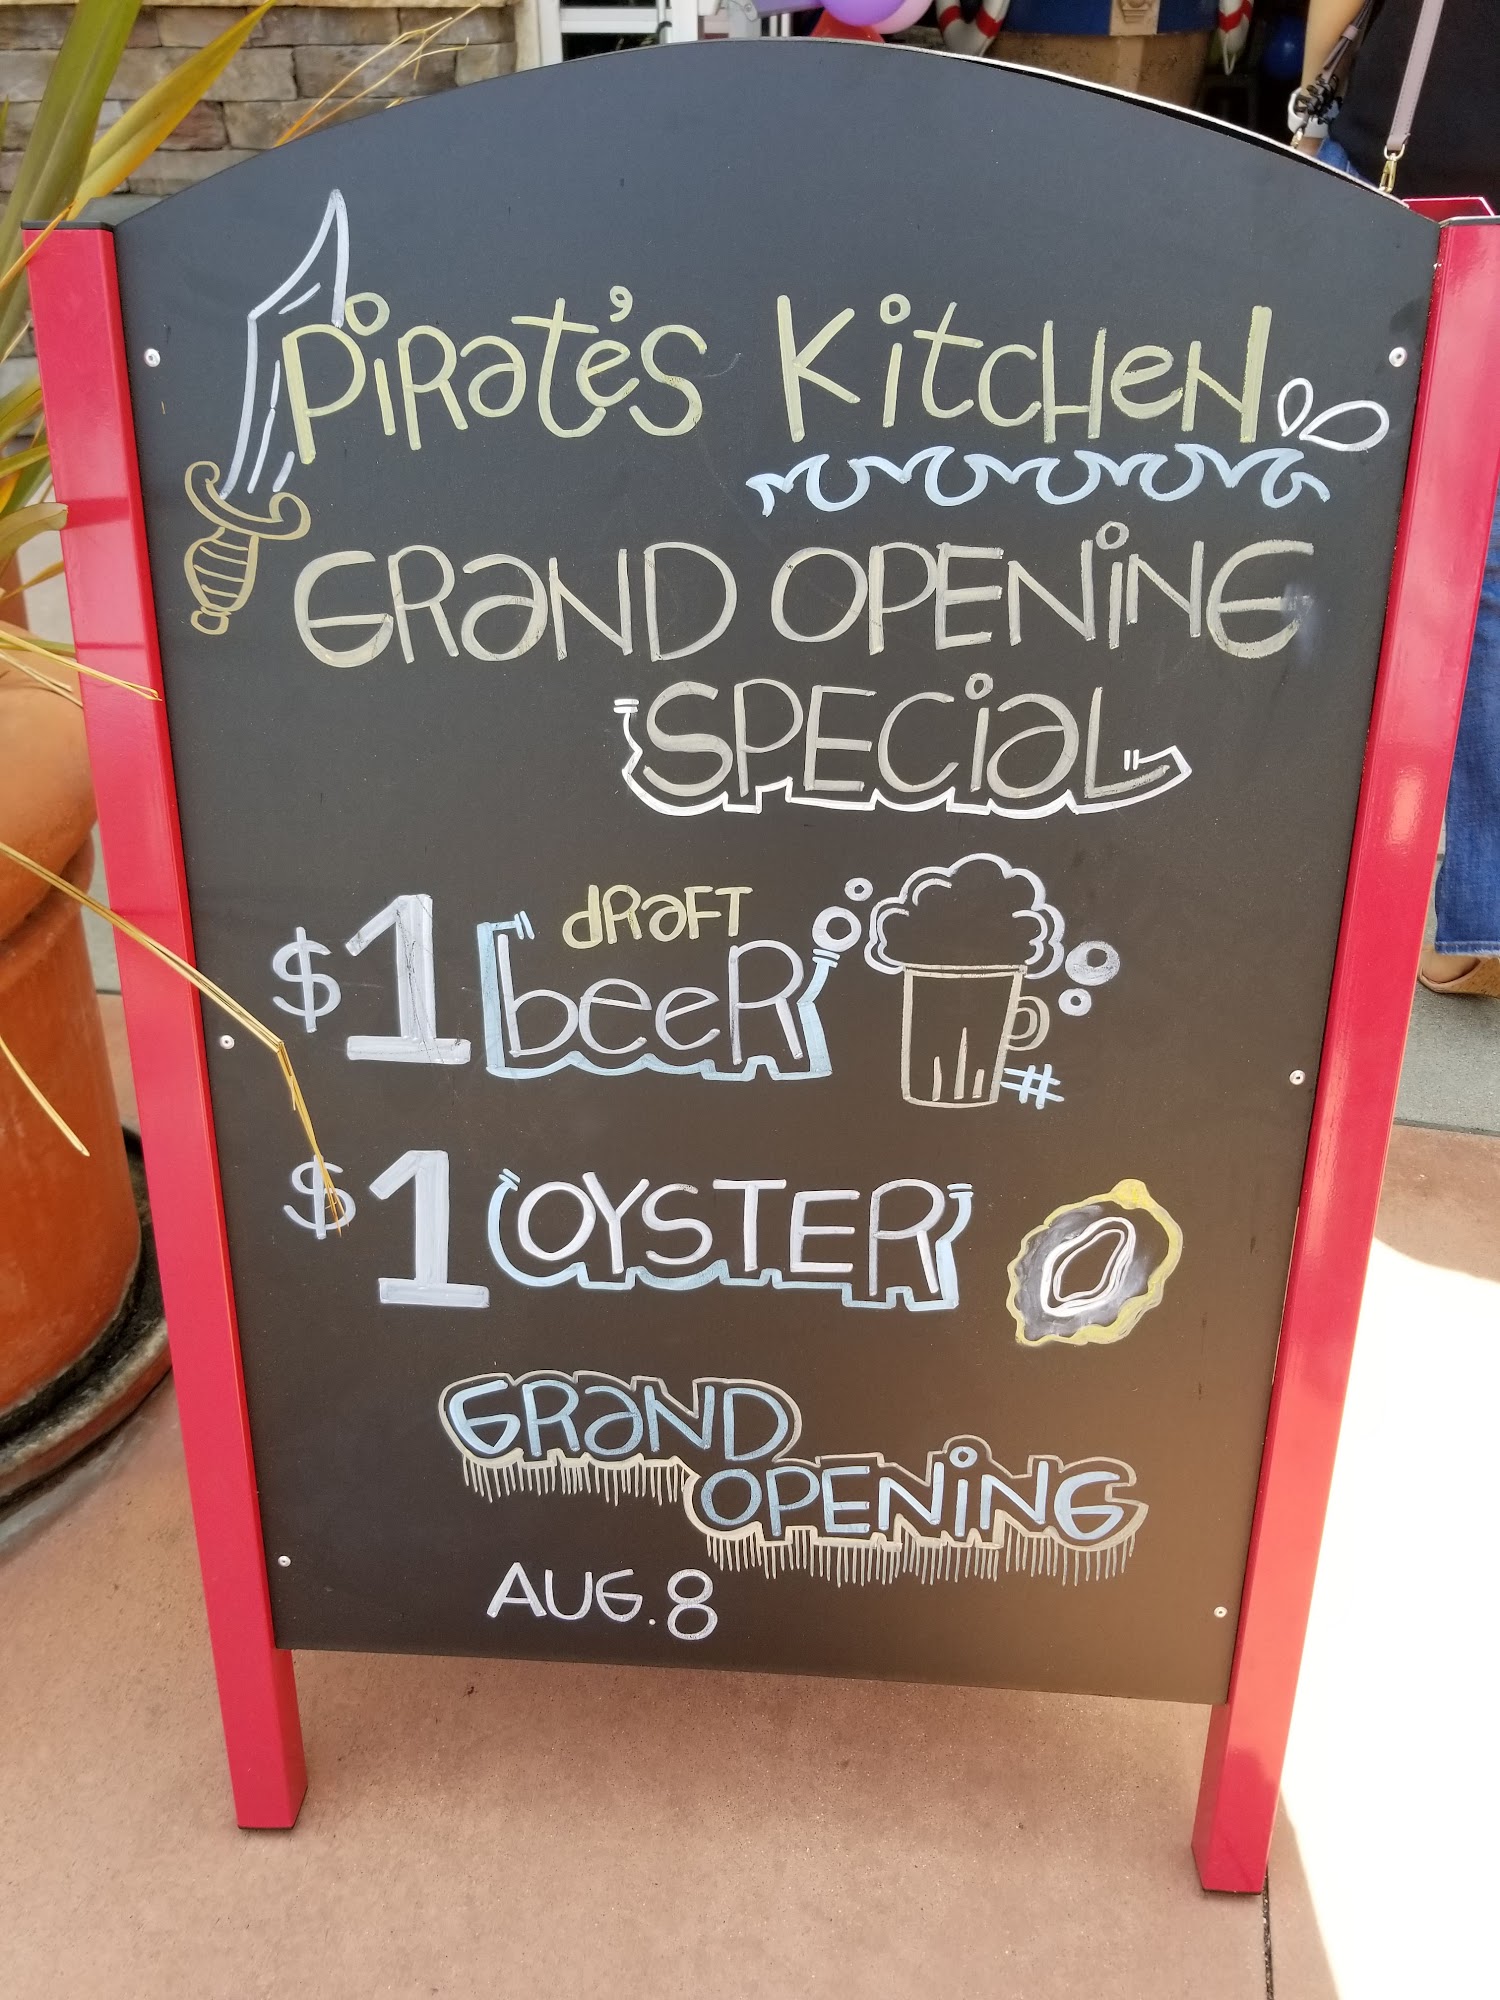 Pirate's Kitchen
GRAND OPENING
SPECIAL
$1 draft beer
$1 OYSTER
GRAND
OPENING
AUG. 8